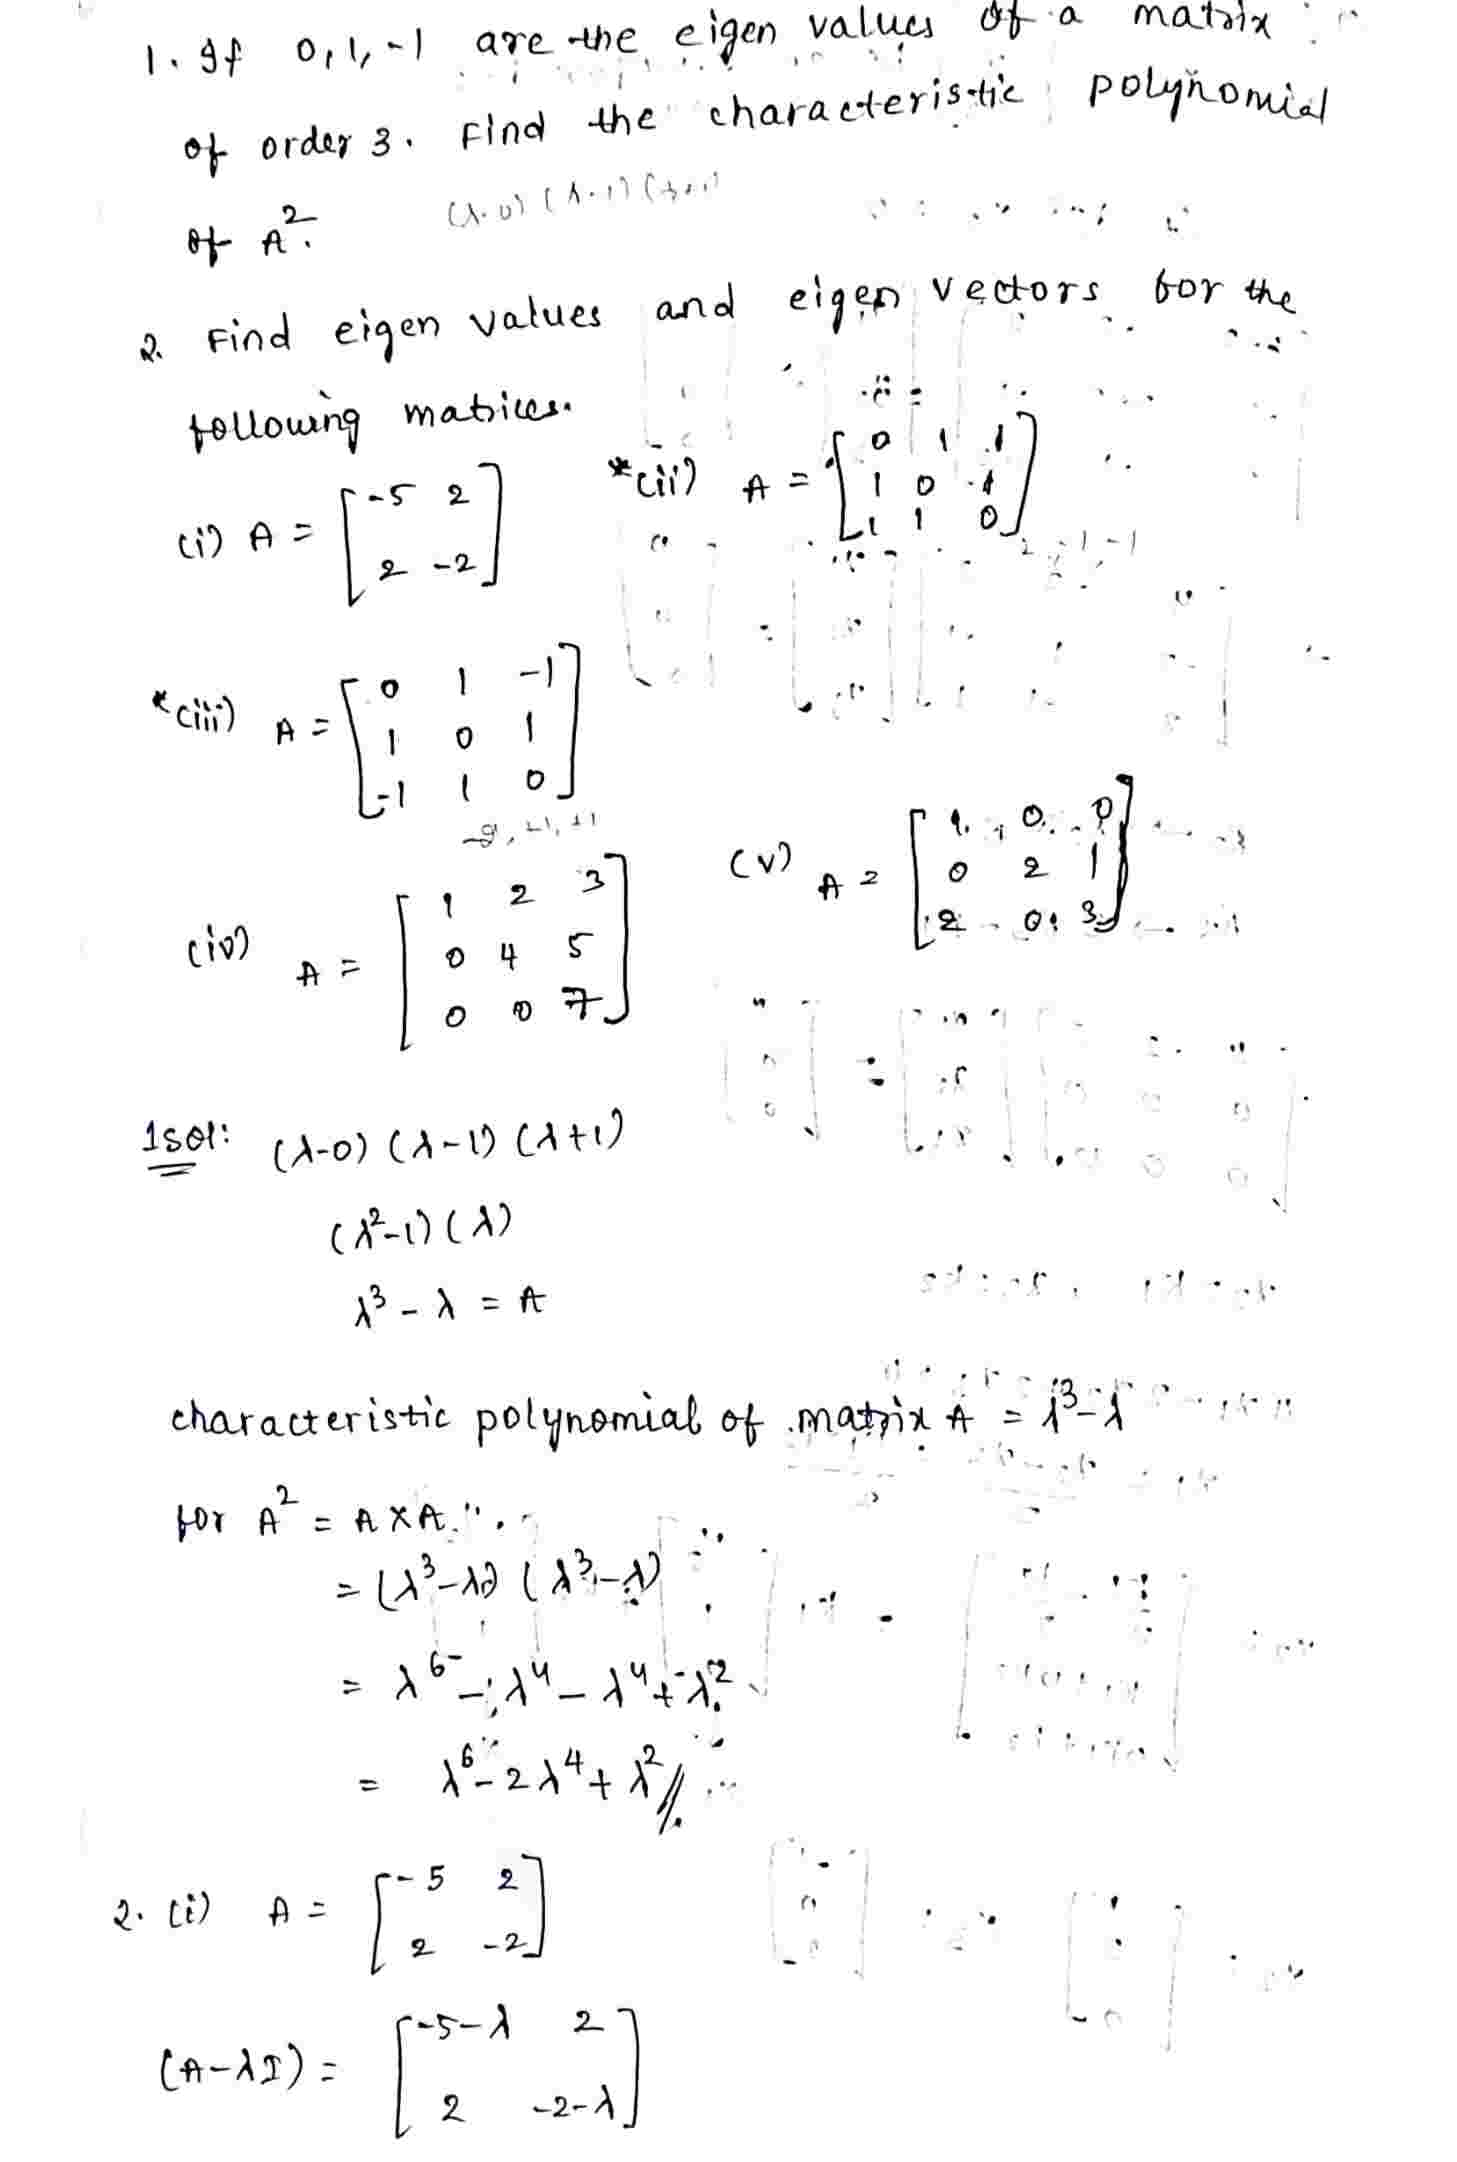 1. If 0,1,-1 are the eigen values of a matrix
of order 3. Find the characteristic polynomial
of A².
(λ-0) (λ-1) (λ+1)
2. Find eigen values and eigen vectors for the
following matrices.
(i) A = [-5 2
2 -2]
*(ii) A = [0 1 1
1 0 1
1 1 0]
2, -1, -1
*(iii) A = [0 1 -1
1 0 1
-1 1 0]
-2, +1, +1
(iv) A = [1 2 3
0 4 5
0 0 7]
(v) A = [1 0 0
0 2 1
2 0 3]
1 sol: (λ-0) (λ-1) (λ+1)
(λ²-1) (λ)
λ³ - λ = A
characteristic polynomial of matrix A = λ³-λ
for A² = A x A
= (λ³-λ) (λ³-λ)
= λ⁶ - λ⁴ - λ⁴ + λ²
= λ⁶ - 2λ⁴ + λ² //
2. (i) A = [-5 2
2 -2]
(A-λI) = [-5-λ 2
2 -2-λ]